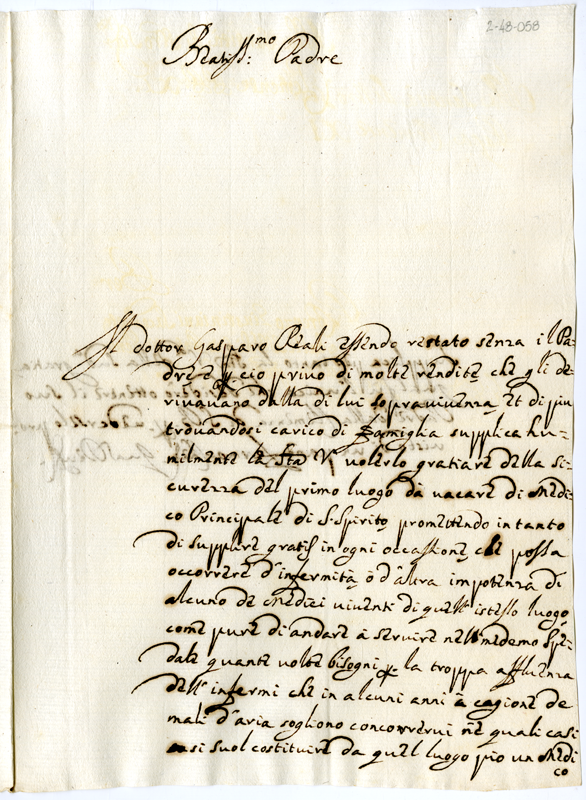 2-48-058
Beatiss.mo Padre
Il dottor Gasparo Reali essendo restato senza il Pa-
dre e p ciò privo di molte rendite che gli de-
rivavano dalla di lui sopravivenza, et di più
trovandosi carico di famiglia supplica hu-
milmente la Sta V. volerlo gratiare della si-
curezza del primo luogo da vacare di Medi-
co Principale di S. Spirito promettendo intanto
di supplire gratis in ogni occassione che possa
occorrere d'infermità, ò d'altra impotenza di
alcuno de Medici viventi di quell'istesso luogo,
come pure di andare à servire nell'medemo Spe-
dale quante volte bisogni p la troppa affluenza
dell'infermi che in alcuni anni à cagione de
mali d'aria sogliono concorrervi nè quali casi
suol costituire da quel luogo pio un Medi
co